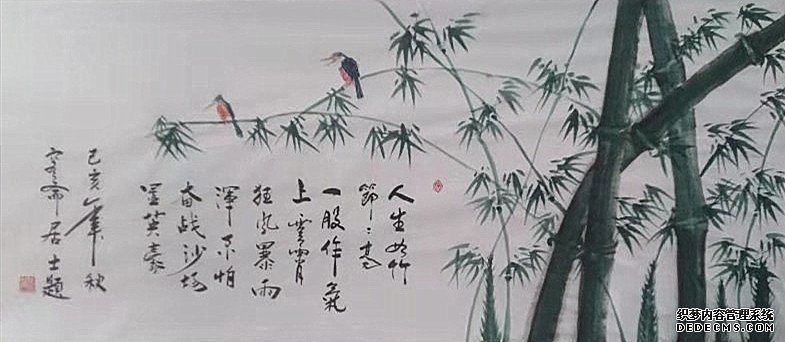 人生如竹
節〻高
一股作氣
上雲霄
狂风暴雨
渾不怕
奋战沙场
英豪
己亥年秋
斋居士题
织梦内容管理系统
DEDECMS.COM